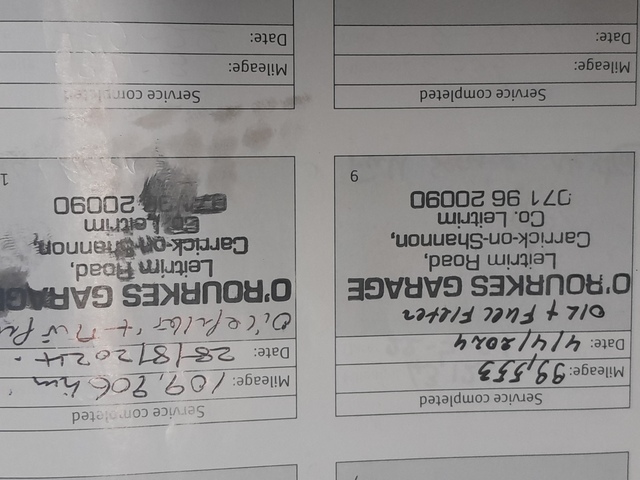 Service completed
Mileage: 99,553
Date: 4/4/2024
OIL + FUEL FILTER
O'ROURKES GARAGE
Leitrim Road,
Carrick-on-Shannon,
Co. Leitrim
071 96 20090
6
Service completed
Mileage: 109,906 km
Date: 28/8/2024.
Oil & filter +
O'ROURKES GARAGE
Leitrim Road,
Carrick-on-Shannon,
Co Leitrim
071 96 20090
Service completed
Mileage:
Date:
Service completed
Mileage:
Date: